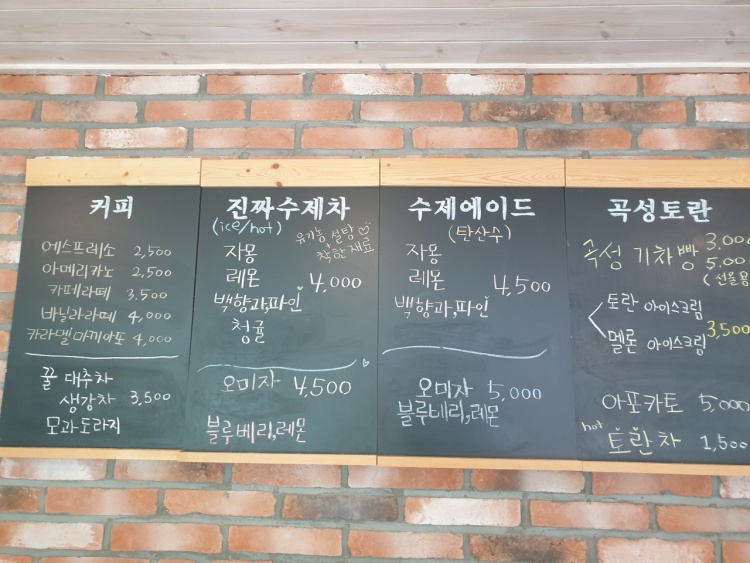 커피
에스프레소 2,500
아메리카노 2,500
카페라떼 3,500
바닐라라떼 4,000
카라멜마끼아또 4,000
꿀 대추차
생강차 3,500
모과도라지
진짜수제차
(ice/hot)
유기농 설탕♡
착한재료
자몽
레몬 4,000
백향과,파인
청귤
오미자 4,500
블루베리,레몬
수제에이드
(탄산수)
자몽
레몬 4,500
백향과,파인
오미자 5,000
블루베리,레몬
곡성토란
곡성 기차빵 3,000
5,00
(선물용
토란 아이스크림
멜론 아이스크림 3,500
아포카토 5,000
hot 토란차 1,500